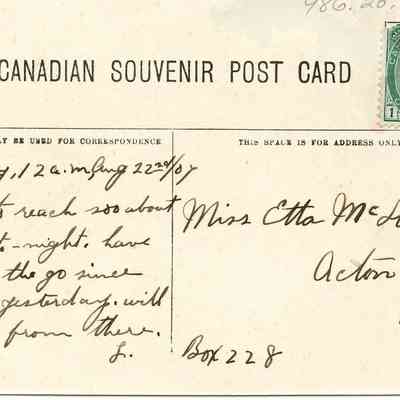 986.20.
CANADIAN SOUVENIR POST CARD
1
LY BE USED FOR CORRESPONDENCE
THIS SPACE IS FOR ADDRESS ONLY
12 a.m Aug 22nd/07
reach soo about
t-night. have
the go since
yesterday. will
from there.
L.
Miss Etta McL
Acton
Box 228